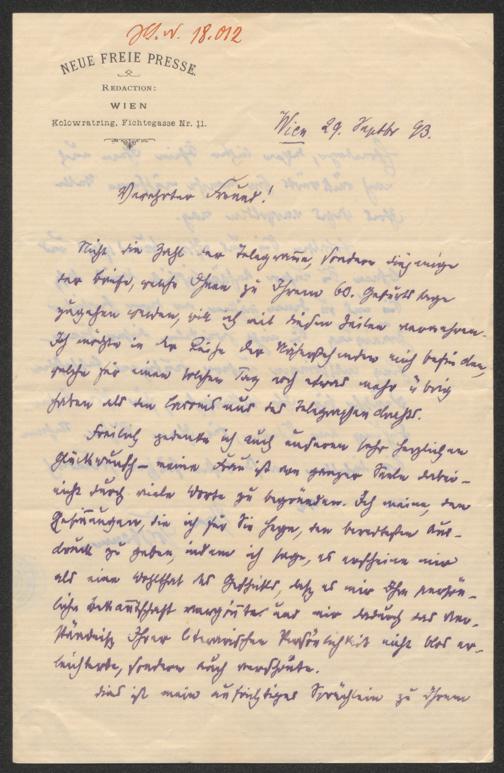 J. N. 18.012
NEUE FREIE PRESSE.
REDACTION:
WIEN
Kolowratring, Fichtegasse Nr. 11.
Wien 29. Septbr 93.
Verehrter Freund!
Nicht die Zahl der Telegramme, sondern diejenige
der Briefe, welche Ihnen zu Ihrem 60. Geburtstage
zugehen werden, will ich mit diesen Zeilen vermehren.
Ich möchte in der Reihe der Näherstehenden mich befinden,
welche für einen solchen Tag noch etwas mehr übrig
haben als den Lakonismus des Telegraphendrahts.
Freilich gedenke ich auch unseren sehr herzlichen
Glückwunsch – meine Frau ist von ganzer Seele dabei –
nicht durch viele Worte zu begründen. Ich meine, den
Gesinnungen, die ich für Sie hege, den beredtesten Aus-
druck zu geben, indem ich sage, es erscheine mir
als eine Wohlthat des Geschicks, daß es mir Ihre persön-
liche Bekanntschaft vergönnte und mir dadurch das Ver-
ständniß Ihrer literarischen Persönlichkeit nicht blos er-
leichterte, sondern auch verschönte.
Dies ist mein aufrichtiges Sprüchlein zu Ihrem